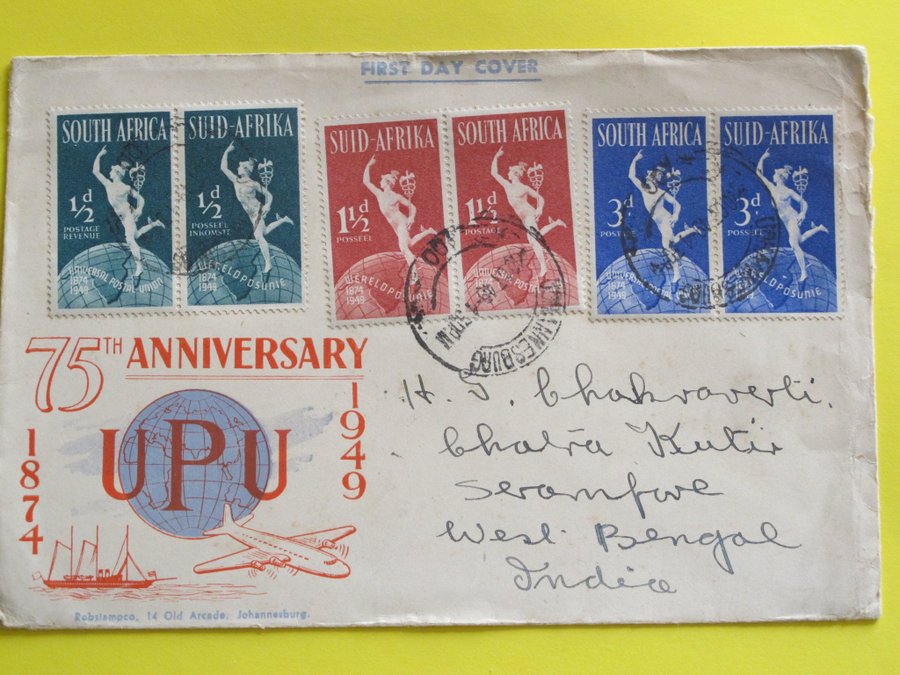 FIRST DAY COVER
SOUTH AFRICA
½d
POSTAGE
REVENUE
UNIVERSAL POSTAL UNION
1874
1949
SUID-AFRIKA
½d
POSSEEL
INKOMSTE
WERELDPOSUNIE
1874
1949
SUID AFRIKA
1½d
POSSEEL
WERELDPOSUNIE
1874
1949
SOUTH AFRICA
1½d
UNIVERSAL POSTAL UNION
1874
1949
SOUTH AFRICA
3d
POSTAGE
UNIVERSAL POSTAL UNION
1874
1949
SUID-AFRIKA
3d
POSSEEL
WERELDPOSUNIE
1874
1949
JOHANNESBURG
75TH ANNIVERSARY
1874
UPU
1949
Robstampco, 14 Old Arcade, Johannesburg.
H. J. Chakraverti.
Chatra Kutir
Serampore
West Bengal
India